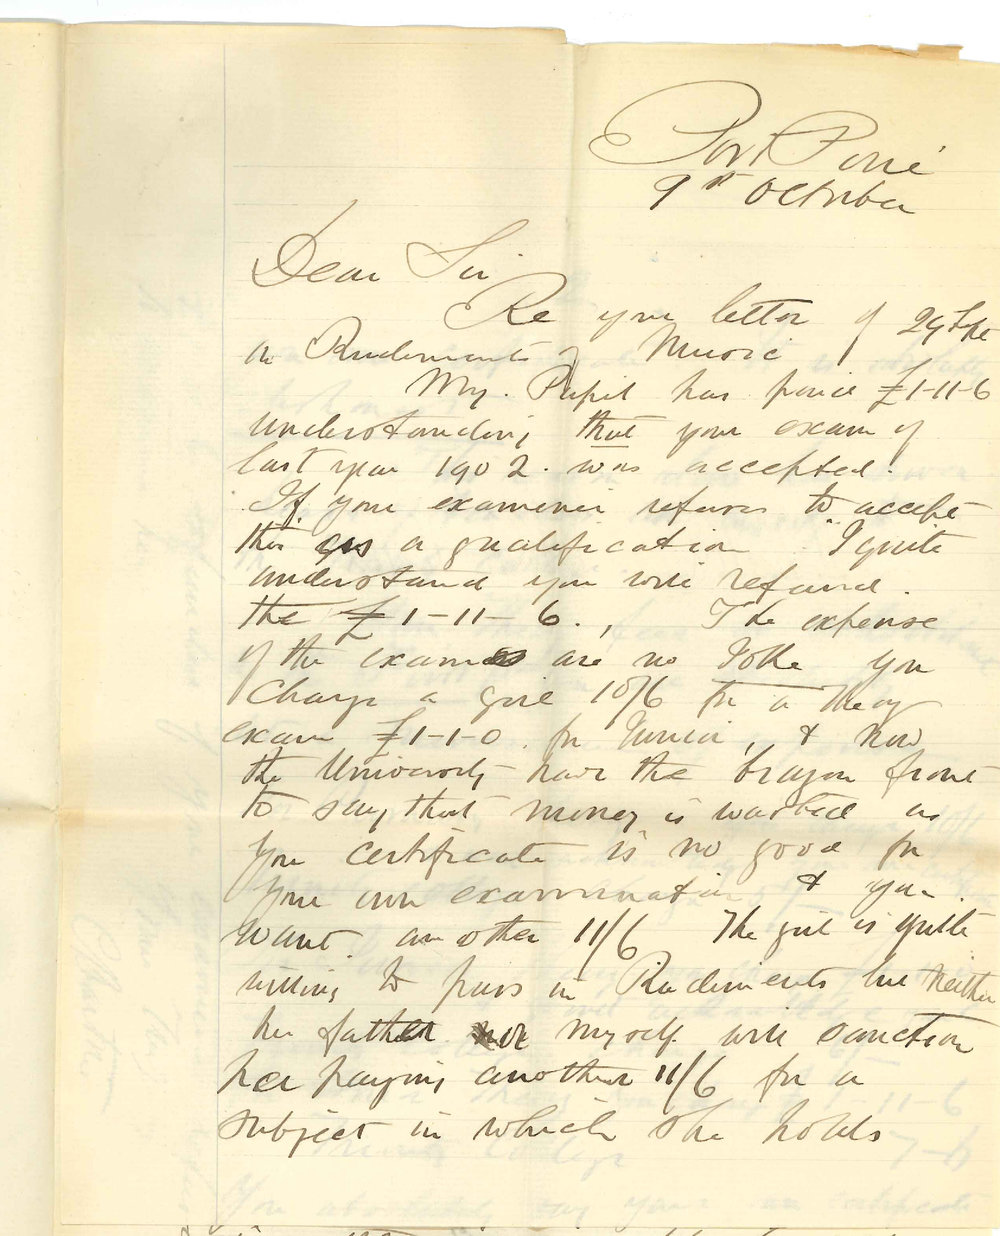 Port Pirie
9th October
Dear Sir
Re your letter of 29 Sept
on Rudiments of Music
My. Pupil has paid £1-11-6
understanding that your exam of
last year 1902. was accepted.
If your examiner refuses to accept
this as a qualification I quite
understand you will refund.
the £1-11-6., The expense
of the exams are no Joke you
charge a girl 10/6 for a theory
exam £1-1-0. for Junior, & now
the University have the brazen front
to say that money is wasted as
your certificate is no good for
your own examination & you
want another 11/6 The girl is quite
willing to pass in Rudiments but neither
her father nor myself will sanction
her paying another 11/6 for a
subject in which she holds